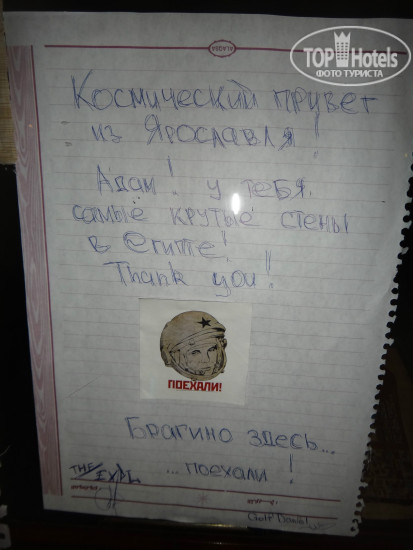 TOP Hotels
ФОТО ТУРИСТА
ALAQSA
Космический привет
из Ярославля!
Адам! у тебя
самые крутые стены
в Египте!
Thank you!
ПОЕХАЛИ!
Брагино здесь...
THE ...поехали!